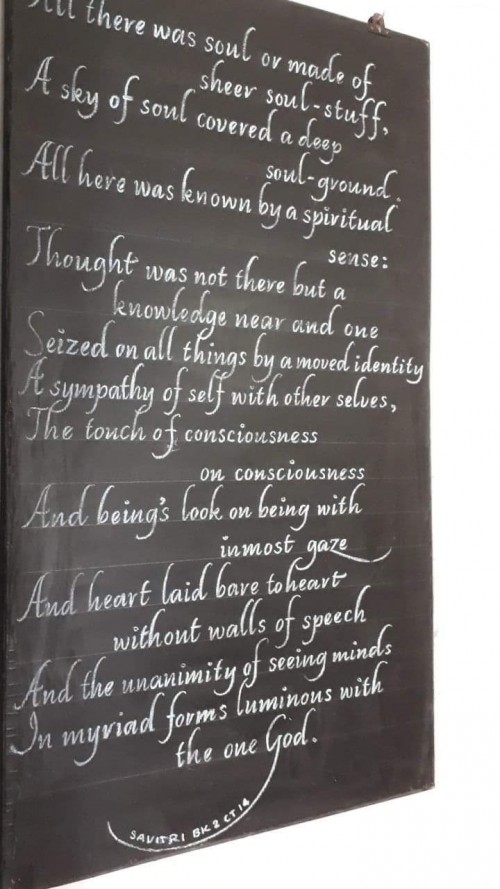 All there was soul or made of
sheer soul-stuff,
A sky of soul covered a deep
soul-ground.
All here was known by a spiritual
sense:
Thought was not there but a
knowledge near and one
Seized on all things by a moved identity
A sympathy of self with other selves,
The touch of consciousness
on consciousness
And being's look on being with
inmost gaze
And heart laid bare to heart
without walls of speech
And the unanimity of seeing minds
In myriad forms luminous with
the one God.
SAVITRI BK 2 CT 14